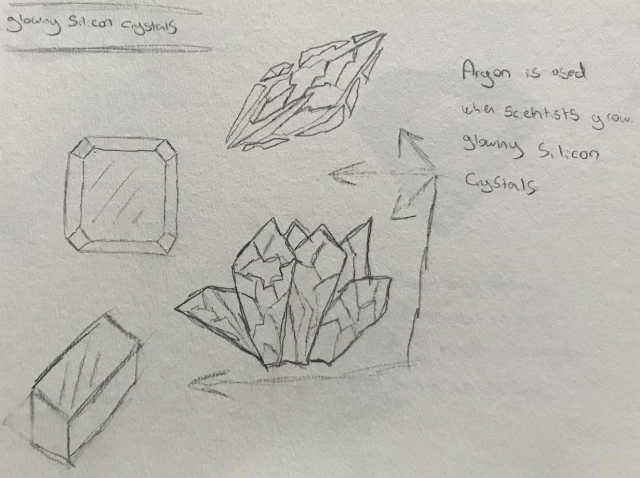 glowny Silicon Crystals
Argon is used
when scientists grow
glowny Silicon
Crystals